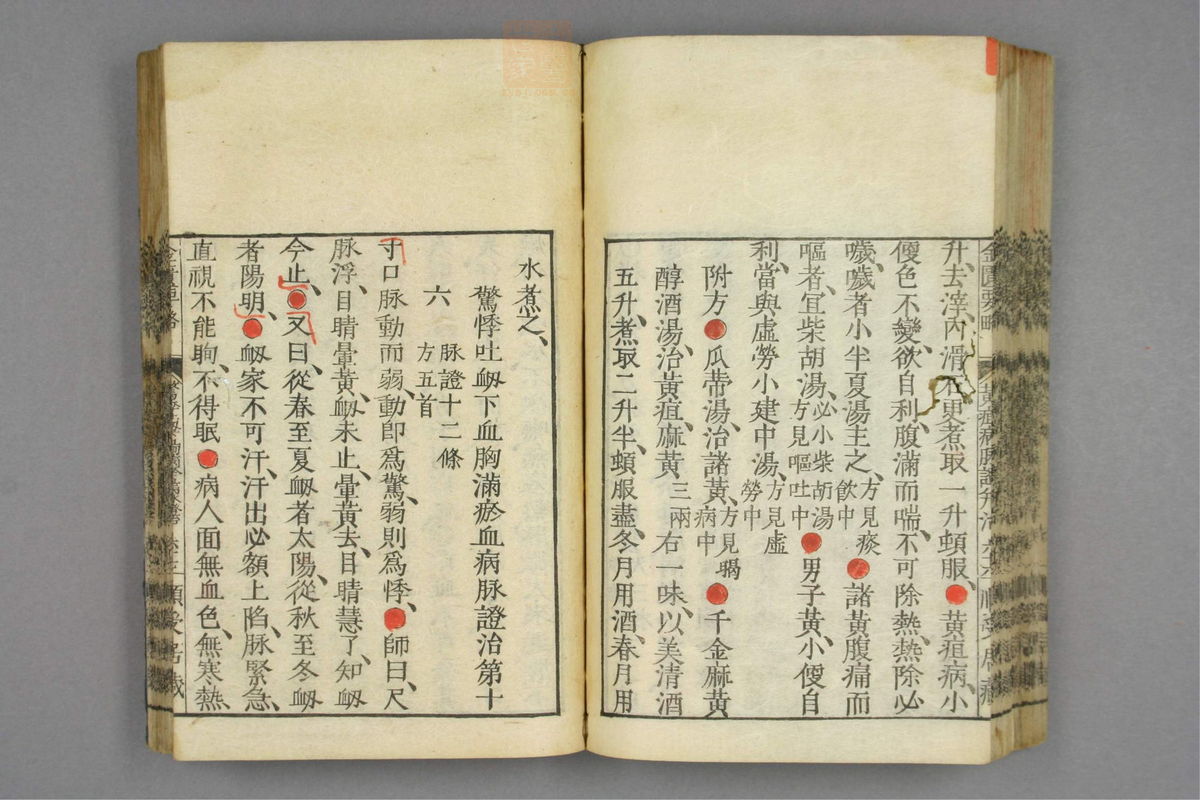 升、去滓、內滑石、更煮取一升、頓服、●黃疸病、小
便色不變、欲自利、腹滿而喘、不可除熱、熱除必
噦、噦者小半夏湯主之、方見痰飲中●諸黃腹痛而
嘔者、宜柴胡湯、必小柴胡湯方見嘔吐中●男子黃、小便自
利、當與虛勞小建中湯、方見虛勞中
附方●瓜蒂湯、治諸黃、方見暍病中●千金麻黃
醇酒湯、治黃疸、麻黃三兩右一味、以美清酒
五升、煮取二升半、頓服盡、冬月用酒、春月用
水煮之、
驚悸吐衂下血胸滿瘀血病脉證治第十
六脉證十二條方五首
寸口脉動而弱、動卽爲驚、弱則爲悸、●師曰、尺
脉浮、目睛暈黃、衂未止、暈黃去、目睛慧了、知衂
今止、●又曰、從春至夏衂者太陽、從秋至冬衂
者陽明、●衂家不可汗、汗出必額上陷、脉緊急、
直視不能眴、不得眠●病人面無血色、無寒熱、